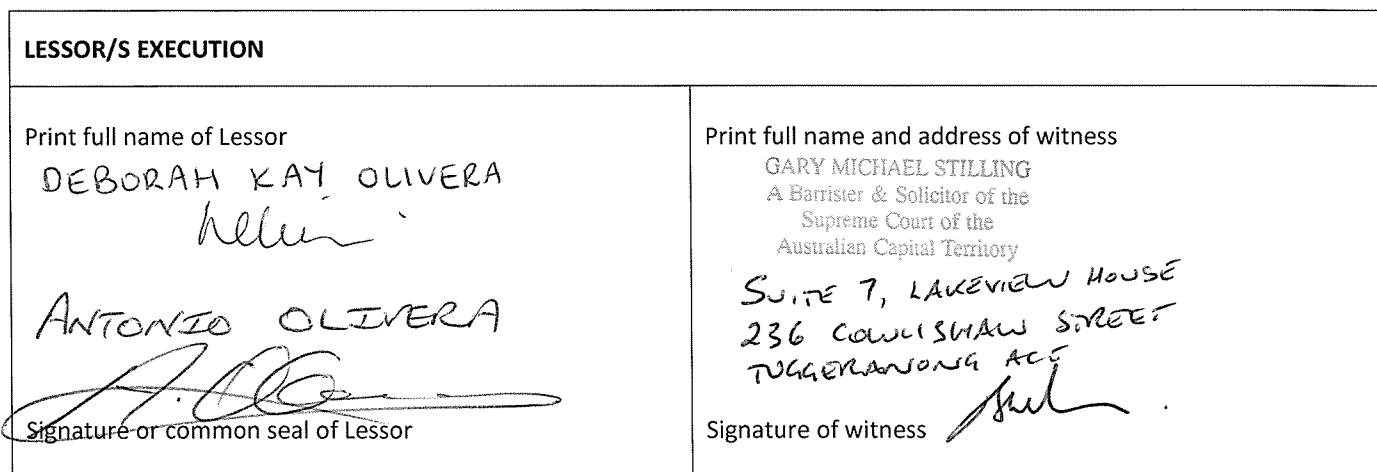 LESSOR/S EXECUTION
Print full name of Lessor
DEBORAH KAY OLIVERA
ANTONIO OLIVERA
Signature or common seal of Lessor
Print full name and address of witness
GARY MICHAEL STILLING
A Barrister & Solicitor of the
Supreme Court of the
Australian Capital Territory
SUITE 7, LAKEVIEW HOUSE
236 COWLISHAW STREET
TUGGERANONG ACT
Signature of witness